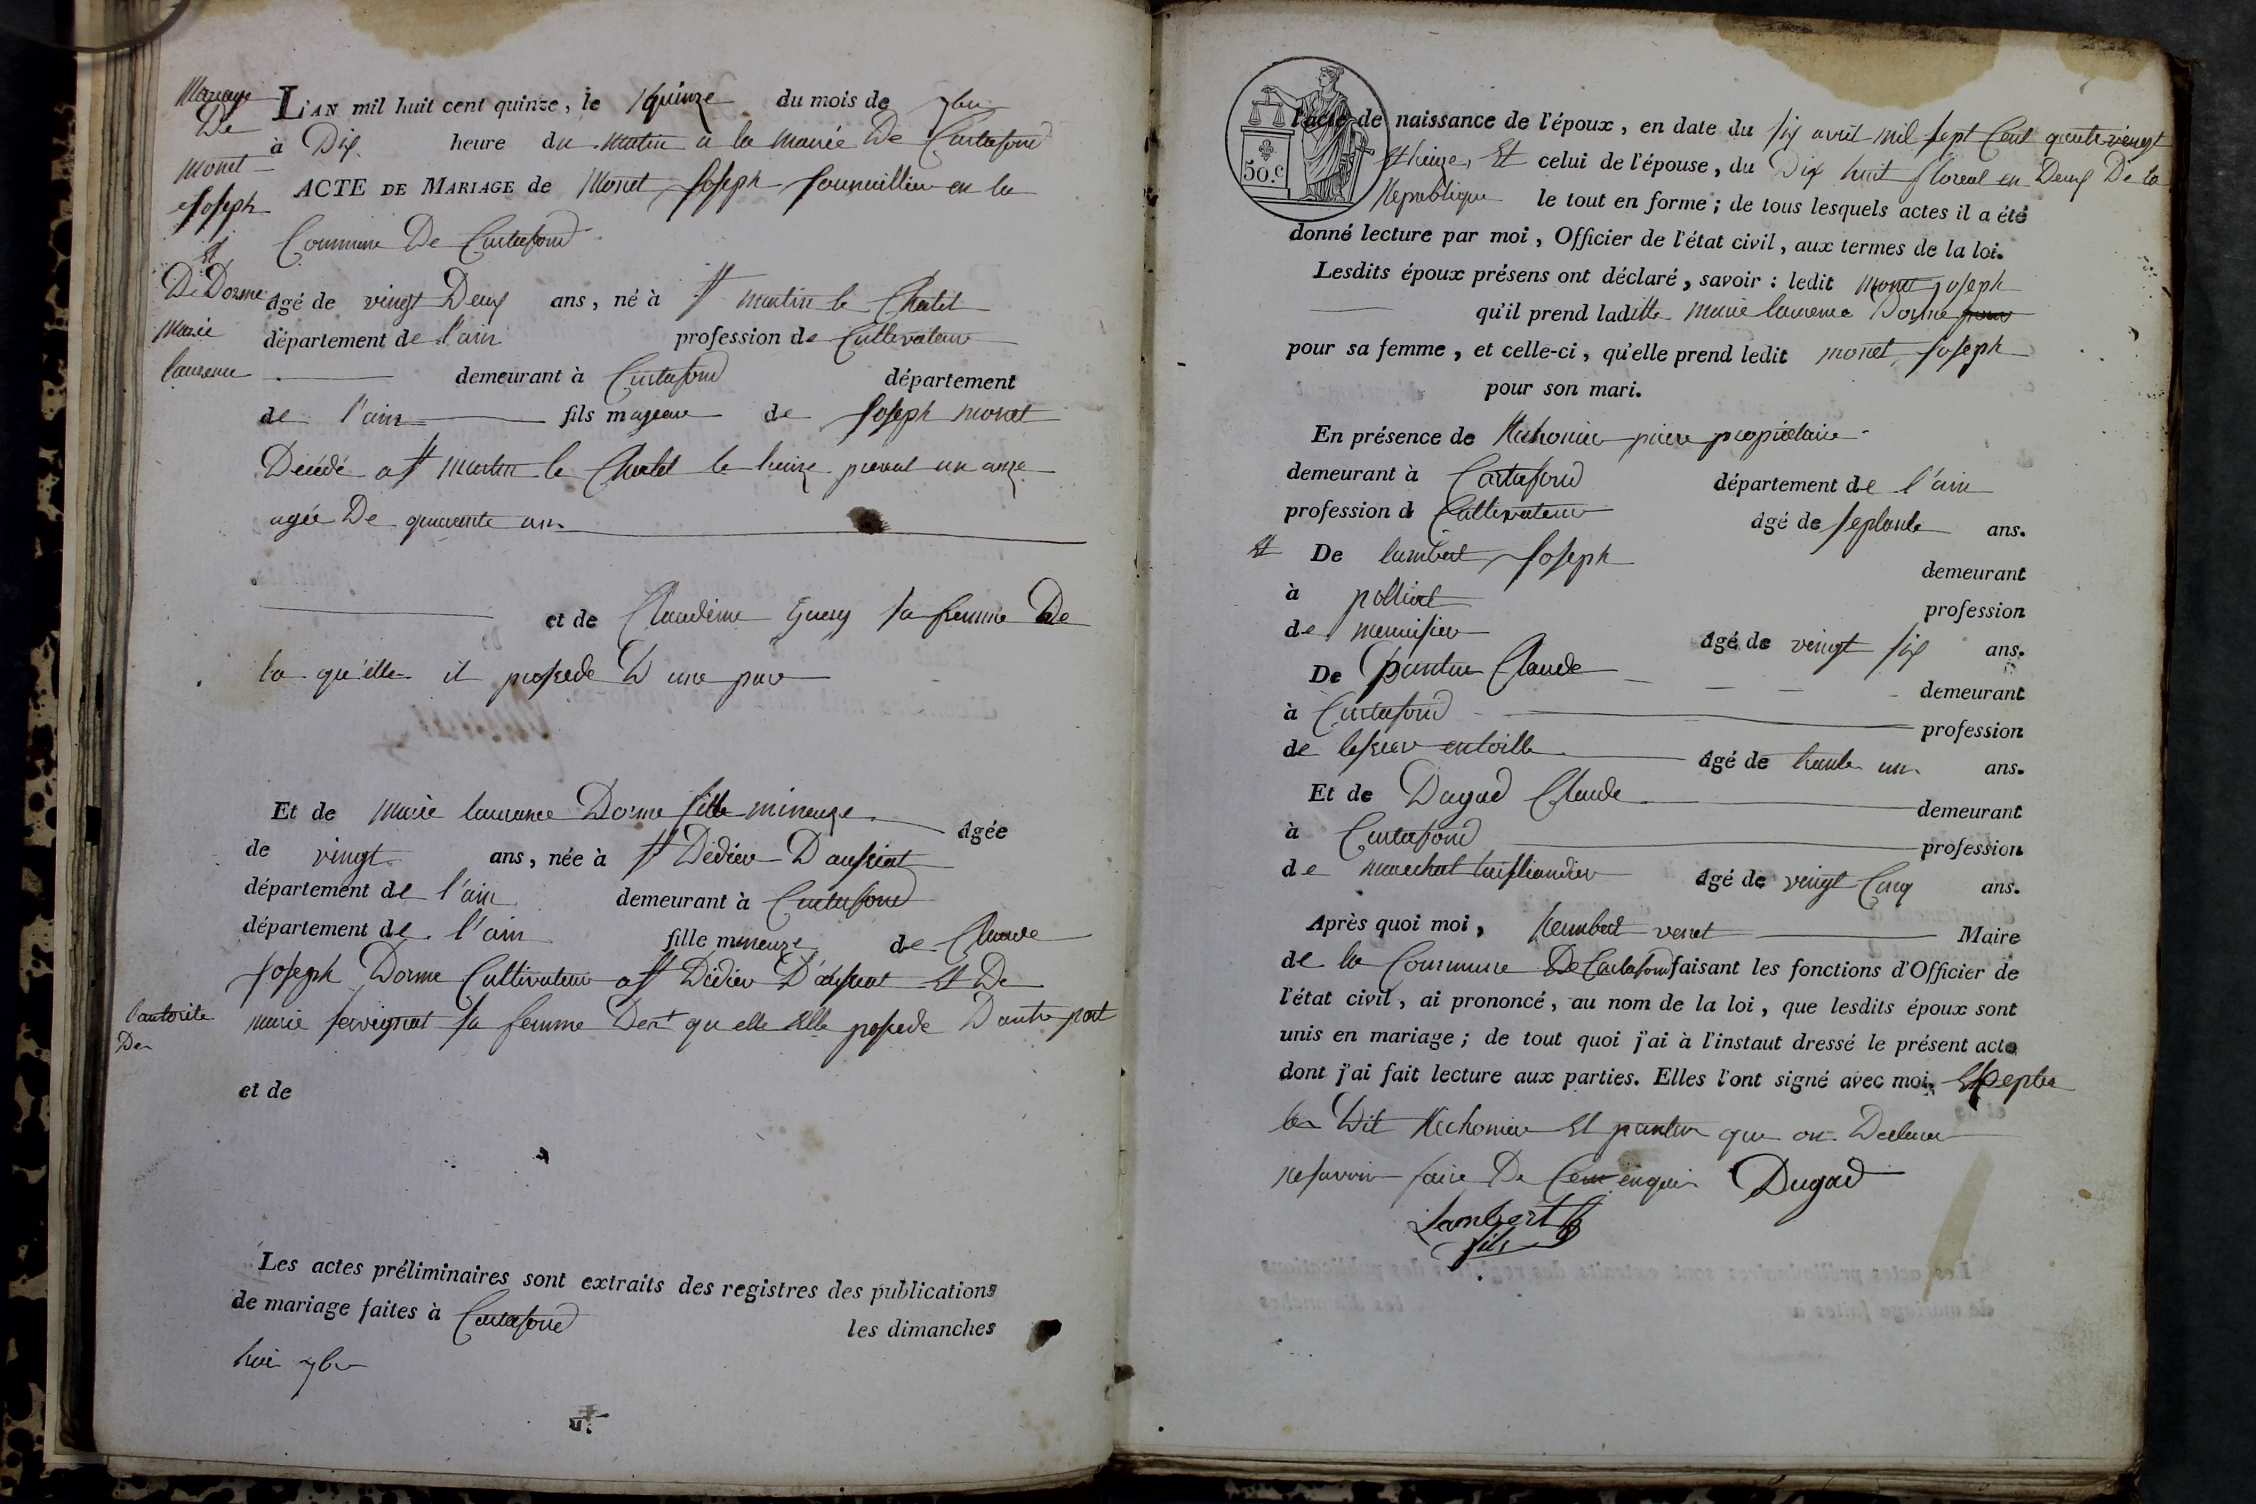 Mariage
De
monet
Joseph
Et
De Dorme
marie
laurence
L'AN mil huit cent quinze, le quinze du mois de 7bre
à Dix heure du matin a la mairie De Curtafond
ACTE DE MARIAGE de Monet Joseph journaillier en la
Commune De Curtafond
âgé de vingt Deux ans, né à St martin le Chatel
département de l'ain profession de Cultivateur
demeurant à Curtafond département
de l'ain fils mageur de Joseph monet
Décédé a St Martin le Chatel le treize prerial an onze
agée De quarente an
et de Claudine Guery sa femme De
la qu'elle il prosede D une par
Et de marie laurance Dorme fille mineuze âgée
de vingt ans, née à St Dedier D'aussiat
département de l'ain demeurant à Curtafond
département de l'ain fille mineuze de Claude
Joseph Dorme Cultivateur a St Didier D'aussiat Et De
marie servignat sa femme De qu elle Elle prosede D'autre part
l'autorite
De
et de
Les actes préliminaires sont extraits des registres des publications
de mariage faites à Curtafond les dimanches
7bre
50.c
l'acte de naissance de l'époux, en date du six avril mil sept Cent quatre vingt
treize, Et celui de l'épouse, du Dix huit floreal en Deux De la
Republique le tout en forme; de tous lesquels actes il a été
donné lecture par moi, Officier de l'état civil, aux termes de la loi.
Lesdits époux présens ont déclaré, savoir: ledit monet joseph
qu'il prend laditte marie laurence Dorme pour
pour sa femme, et celle-ci, qu'elle prend ledit monet Joseph
pour son mari.
En présence de piere propriétaire
demeurant à Curtafond département de l'ain
profession de Cultivateur âgé de septante ans.
Et De lambert Joseph demeurant
à polliat profession
de menuisier âgé de vingt six ans.
De pantin Claude demeurant
à Curtafond profession
de tessier en toille âgé de trante un ans.
Et de Dugad Claude demeurant
à Curtafond profession
de marechal âgé de vingt Cinq ans.
Après quoi moi, venet Maire
de la Commune De Curtafond faisant les fonctions d'Officier de
l'état civil, ai prononcé, au nom de la loi, que lesdits époux sont
unis en mariage; de tout quoi j'ai à l'instaut dressé le présent acte
dont j'ai fait lecture aux parties. Elles l'ont signé avec moi, Excepter
les Dit Et pantin que on Declarer
ne savoir faire De Ceux enquis Dugad
Lambert
fils